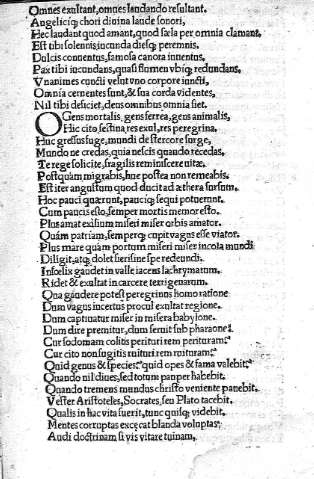 Omnes exultant, omnes laudando resultant.
Angelicíq; chori diuina laude sonori,
Hec laudant quod amant, quod sæla per omnia clamant.
Est tibi solennis, iucunda diesq; peremnis,
Dulcis conuentus, famosa canora inuentus,
Pax tibi iucundans, quasi flumen vbiq; redundans.
Vnanimes cuncti velut vno corpore iuncti,
Omnia cernentes sunt, & sua corda videntes,
Nil tibi deficiet, deus omnibus omnia fiet.
O Gens mortalis, gens ferrea, gens animalis,
Hic cito festina, res exul, res peregrina.
Huc gressus fuge, mundi de stercore surge,
Mundo ne credas, quia nescis quando recedas.
Te rege solicite, fragilis reminiscere uitæ.
Postquàm migrabis, huc postea non remeabis.
Est iter angustum quod ducit ad æthera iustum.
Hoc pauci quærunt, pauciq; sequi potuerunt.
Cum paucis esto, semper mortis memor esto.
Plus amat exilium miseri miser orbis amator.
Quàm patriam, semperq; cupit vagus esse viator.
Plus mare quàm portum miseri miser incola mundi
Diligit, atq; dolet si erit spe redeundi.
Infœlix gaudet in valle iacens lachrymarum.
Ridet & exultat in carcere terrigenarum.
Qua gaudere potest peregrinus homo ratione
Dum vagus incertus procul exultat regione.
Dum captiuatur miser in misera babylone.
Dum dire premitur, dum seruit sub pharaone?
Cur sodomam colitis perituri rem perituram?
Cur cito non fugitis ruituri rem ruituram?
Quid genus & species: quid opes & fama valebit?
Quando nil diues, sed totum pauper habebit.
Quando tremens mundus christo veniente pauebit.
Vester Aristoteles, Socrates, seu Plato tacebit.
Qualis in hac vita fuerit, tunc quisq; videbit.
Mentes corruptas excæcat blanda voluptas.
Audi doctrinam si vis vitare ruinam.